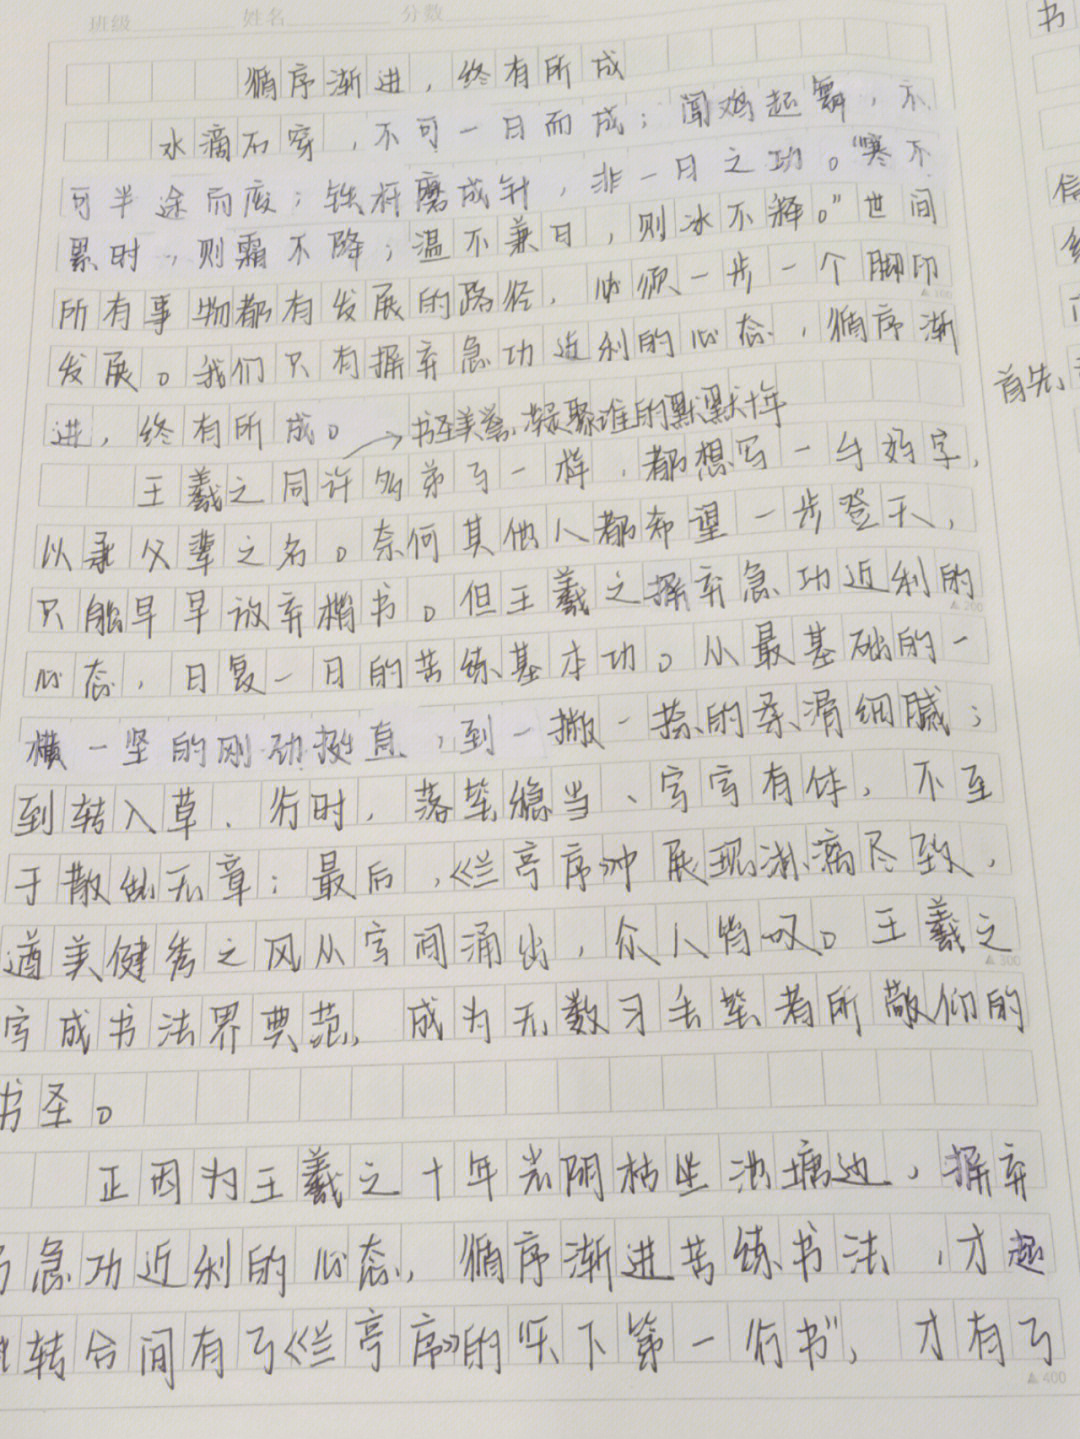 班级 姓名 分数
循序渐进，终有所成
水滴石穿，不可一日而成；闻鸡起舞，不
可半途而废；铁杵磨成针，非一日之功。“寒不
累时，则霜不降；温不兼日，则冰不释。”世间
所有事物都有发展的路径，必须一步一个脚印
▲100
发展。我们只有摒弃急功近利的心态，循序渐
进，终有所成。
书圣美誉，凝聚谁的默默十年
王羲之同许多弟子一样，都想写一手好字，
以承父辈之名。奈何其他人都希望一步登天，
只能早早放弃楷书。但王羲之摒弃急功近利的
▲200
心态，日复一日的苦练基本功。从最基础的一
横一竖的刚劲挺直，到一撇一捺的柔滑细腻；
到转入草、行时，落笔稳当、字字有体，不至
于散乱无章；最后，《兰亭序》中展现淋漓尽致，
遒美健秀之风从字间涌出，众人皆叹。王羲之
▲300
字成书法界典范，成为无数习毛笔者所敬仰的
书圣。
正因为王羲之十年光阴枯坐池塘边，摒弃
了急功近利的心态，循序渐进苦练书法，才起
转合间有了《兰亭序》的“天下第一行书”，才有了
▲400
书
首先，